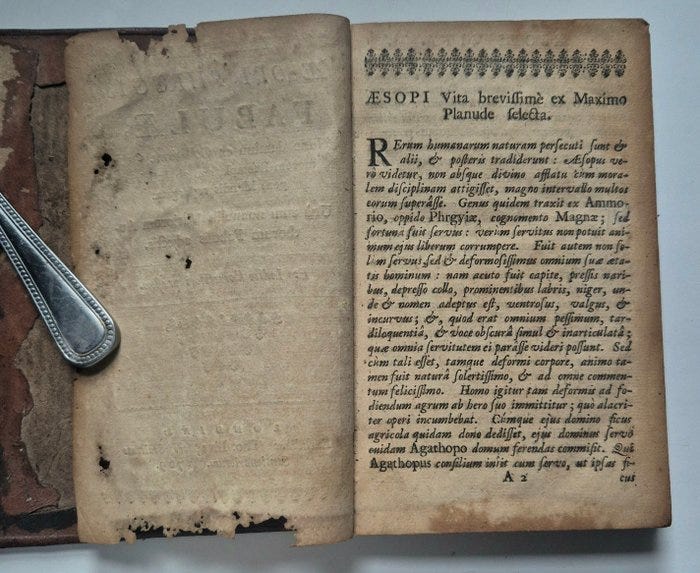 ÆSOPI Vita brevissimè ex Maximo
Planude selecta.
RErum humanarum naturam persecuti sunt &
alii, & posteris tradiderunt: Æsopus ve-
rò videtur, non absque divino afflatu cùm mora-
lem disciplinam attigisset, magno intervallo multos
eorum superâsse. Genus quidem traxit ex Ammo-
rio, oppido Phrygiæ, cognomento Magnæ; sed
fortunâ fuit servus: verùm servitus non potuit ani-
mum ejus liberum corrumpere. Fuit autem non so-
lùm servus sed & deformissimus omnium suæ æta-
tis hominum: nam acuto fuit capite, pressis nari-
bus, depresso collo, prominentibus labris, niger, un-
de & nomen adeptus est, ventrosus, valgus, &
incurvus; &, quod erat omnium pessimum, tar-
diloquentiâ, & voce obscurâ simul & inarticulatâ;
quæ omnia servitutem ei parâsse videri possunt. Sed
cùm tali esset, tamque deformi corpore, animo ta-
men fuit naturâ solertissimo, & ad omne commen-
tum felicissimo. Homo igitur tam deformis ad fo-
diendum agrum ab hero suo immittitur; quò alacri-
ter operi incumbebat. Cùmque ejus domino ficus
agricola quidam dono dedisset, ejus dominus servo
cuidam Agathopo domum ferendas commisit. Qui
Agathopus consilium iniit cum servo, ut ipsas fi-
A 2 cus